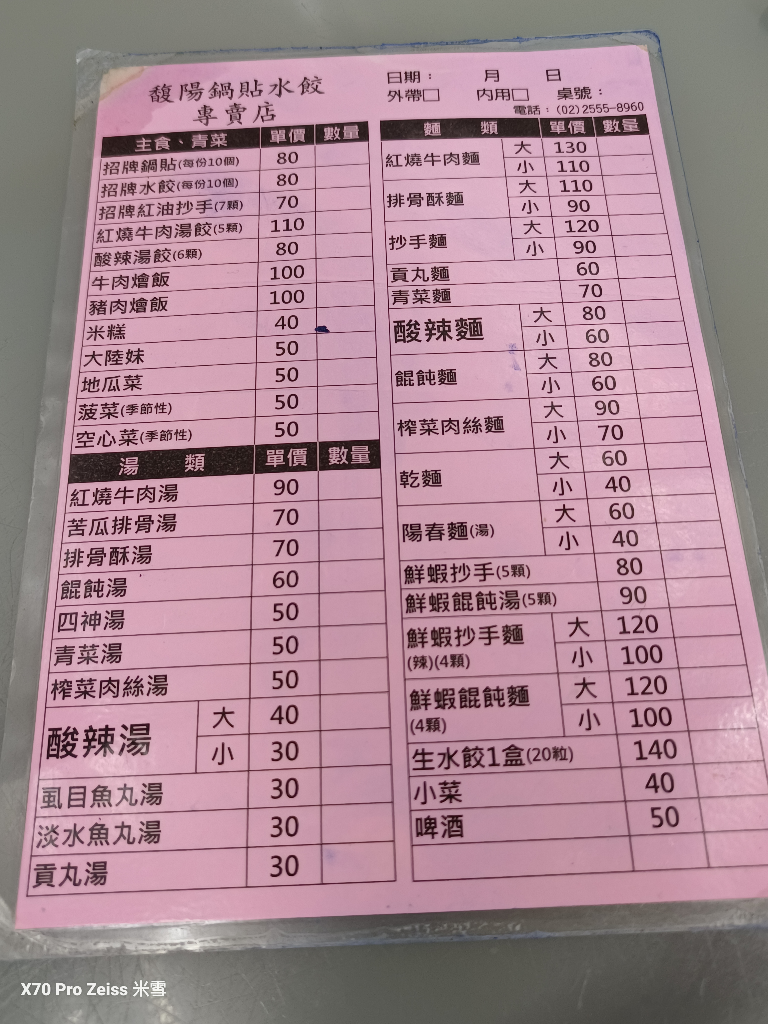 馥陽鍋貼水餃
專賣店
日期： 月 日
外帶□ 內用□ 桌號：
電話：(02)2555-8960
主食、青菜 單價 數量
招牌鍋貼(每份10個) 80
招牌水餃(每份10個) 80
招牌紅油抄手(7顆) 70
紅燒牛肉湯餃(5顆) 110
酸辣湯餃(6顆) 80
牛肉燴飯 100
豬肉燴飯 100
米糕 40
大陸妹 50
地瓜菜 50
菠菜(季節性) 50
空心菜(季節性) 50
湯 類 單價 數量
紅燒牛肉湯 90
苦瓜排骨湯 70
排骨酥湯 70
餛飩湯 60
四神湯 50
青菜湯 50
榨菜肉絲湯 50
酸辣湯 大 40
小 30
虱目魚丸湯 30
淡水魚丸湯 30
貢丸湯 30
麵 類 單價 數量
紅燒牛肉麵 大 130
小 110
排骨酥麵 大 110
小 90
抄手麵 大 120
小 90
貢丸麵 60
青菜麵 70
酸辣麵 大 80
小 60
餛飩麵 大 80
小 60
榨菜肉絲麵 大 90
小 70
乾麵 大 60
小 40
陽春麵(湯) 大 60
小 40
鮮蝦抄手(5顆) 80
鮮蝦餛飩湯(5顆) 90
鮮蝦抄手麵 大 120
(辣)(4顆) 小 100
鮮蝦餛飩麵 大 120
(4顆) 小 100
生水餃1盒(20粒) 140
小菜 40
啤酒 50
X70 Pro Zeiss 米雪